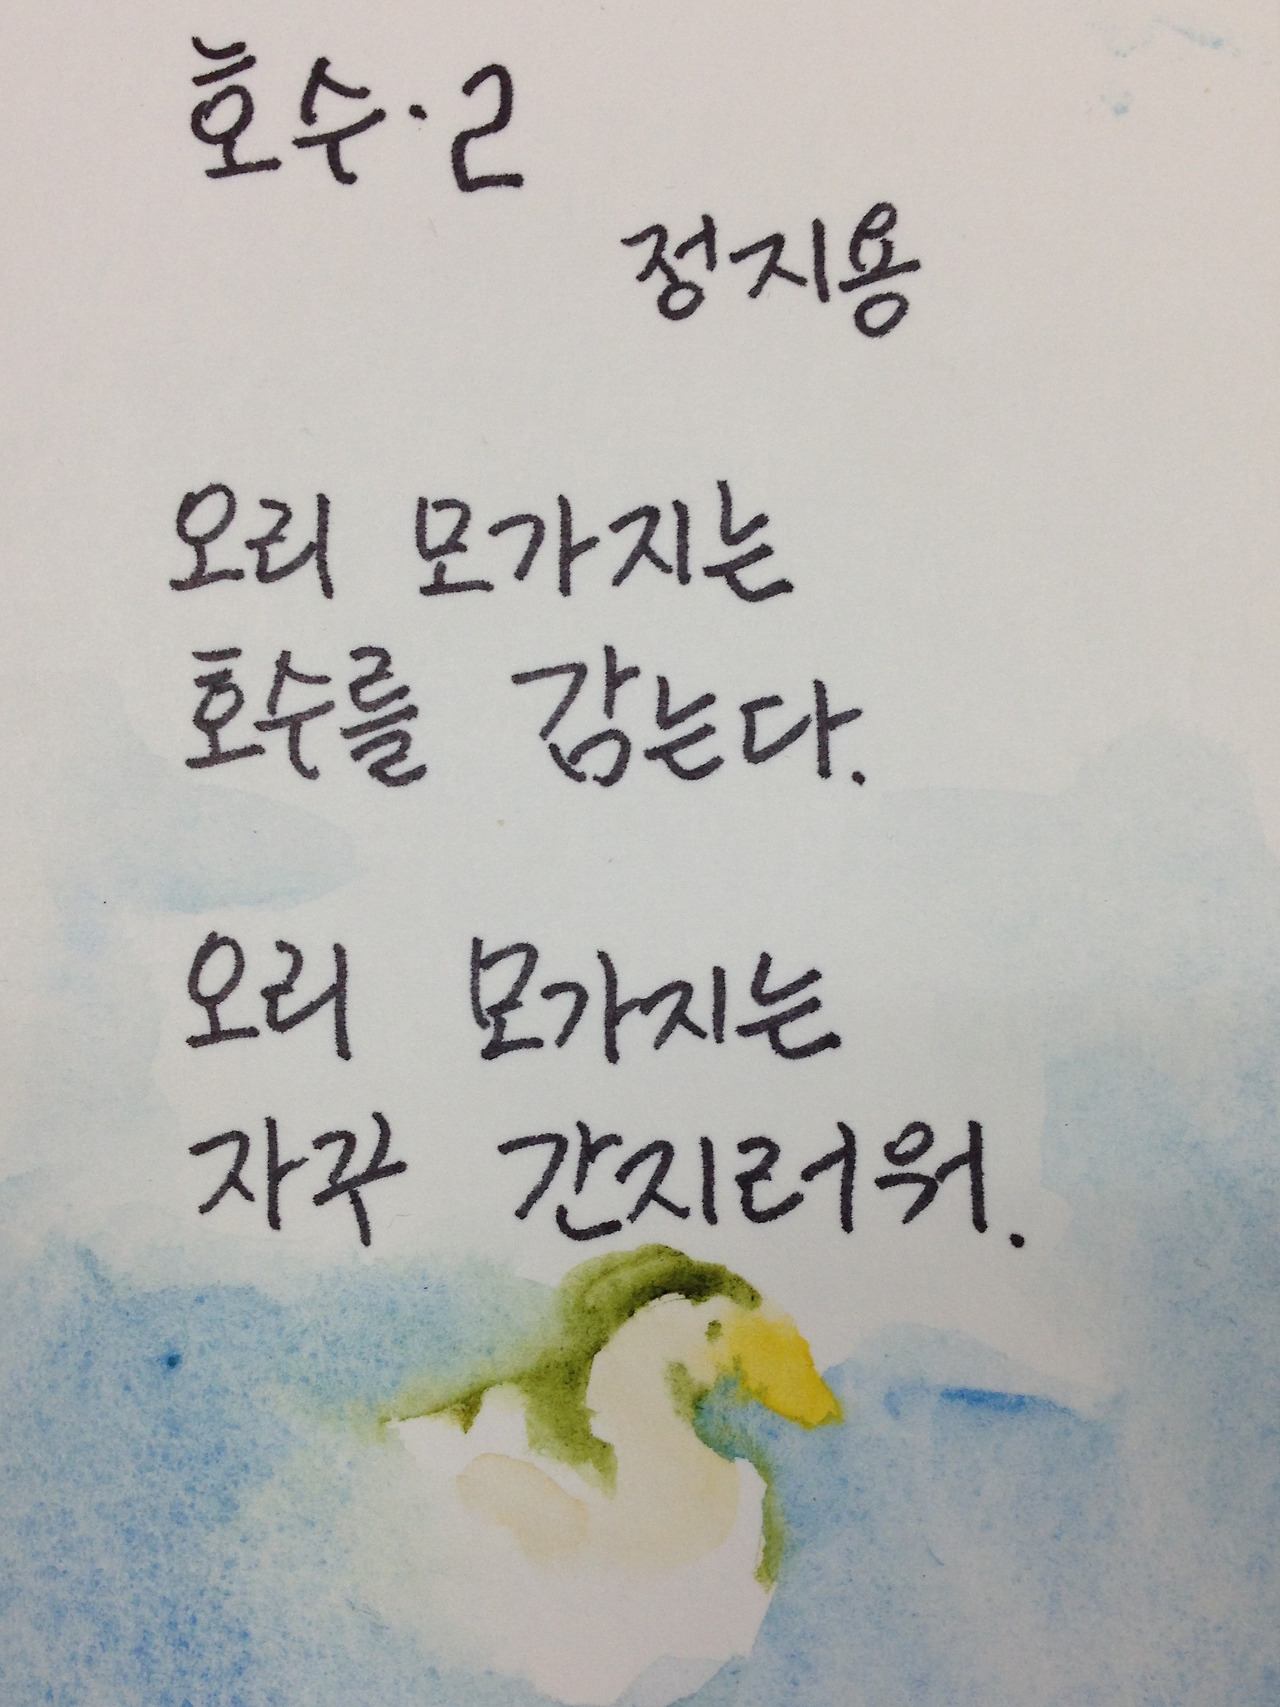 호수·2
정지용
오리 모가지는
호수를 감는다.
오리 모가지는
자꾸 간지러워.